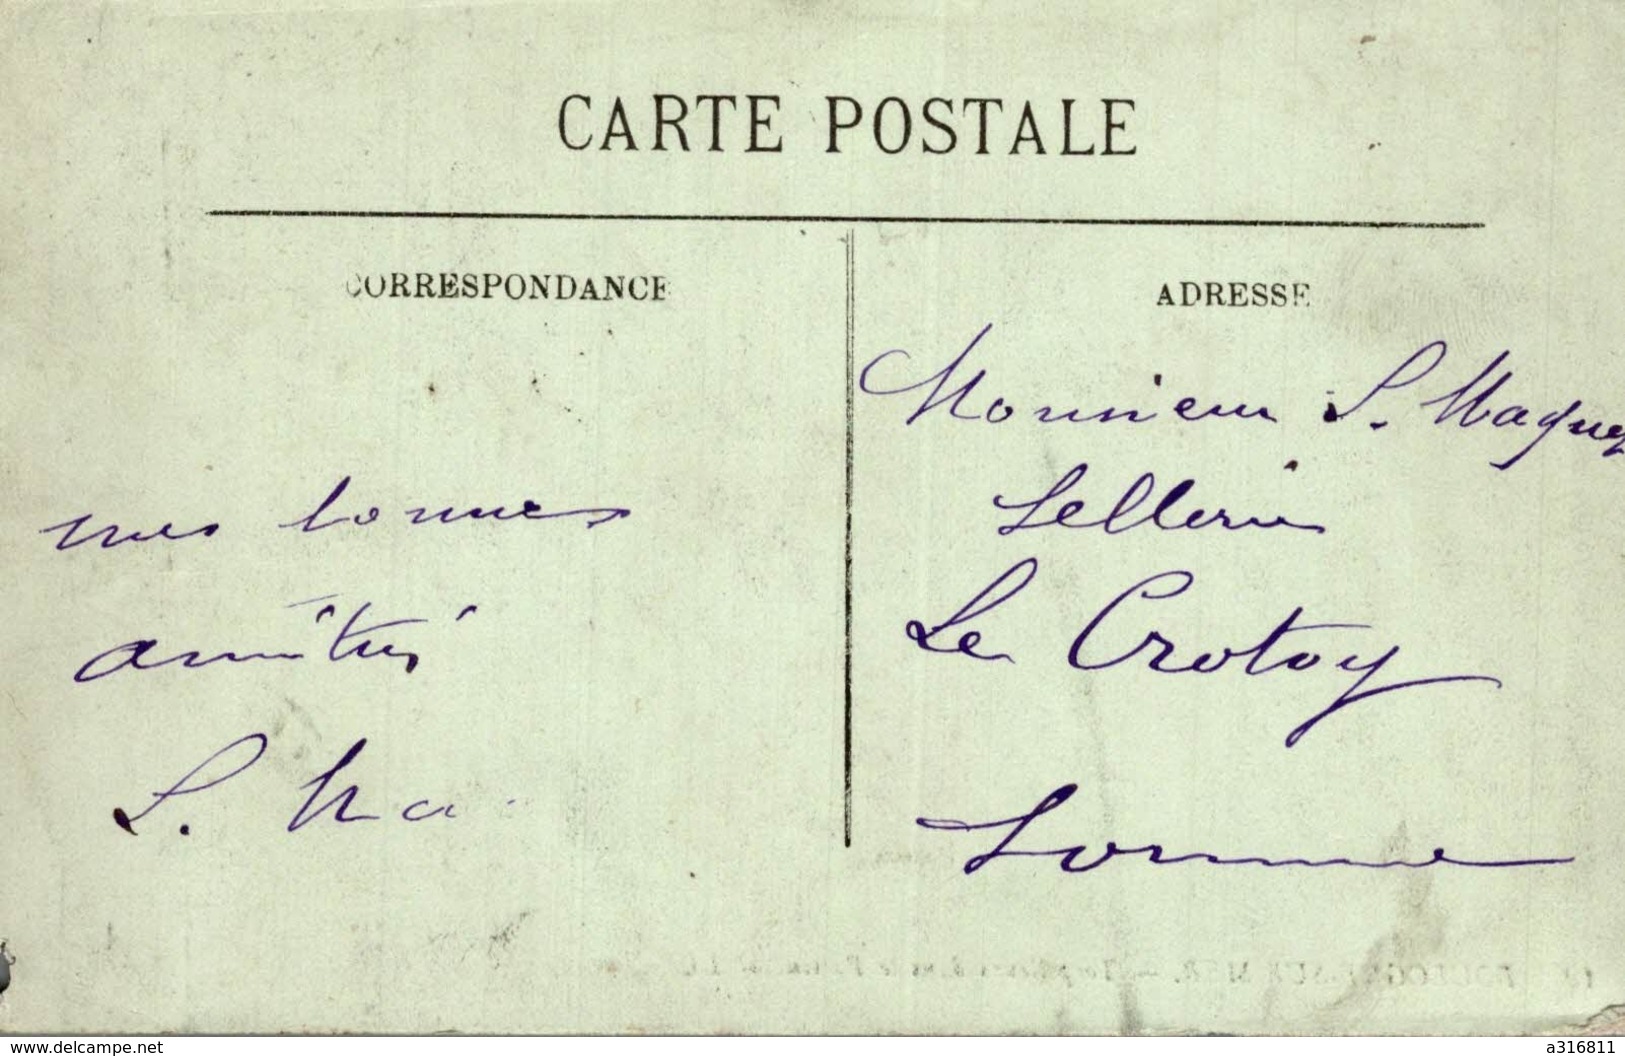 CARTE POSTALE
CORRESPONDANCE
ADRESSE
mes bonnes
amitiés
S. Ma
Monsieur S. Maquet
Sellerie
Le Crotoy
Somme
BOULOGNE-SUR-MER. —
www.delcampe.net
a316811